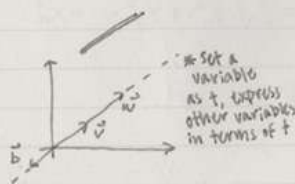 * set a
variable
as t, express
other variables
in terms of t
w
v
b